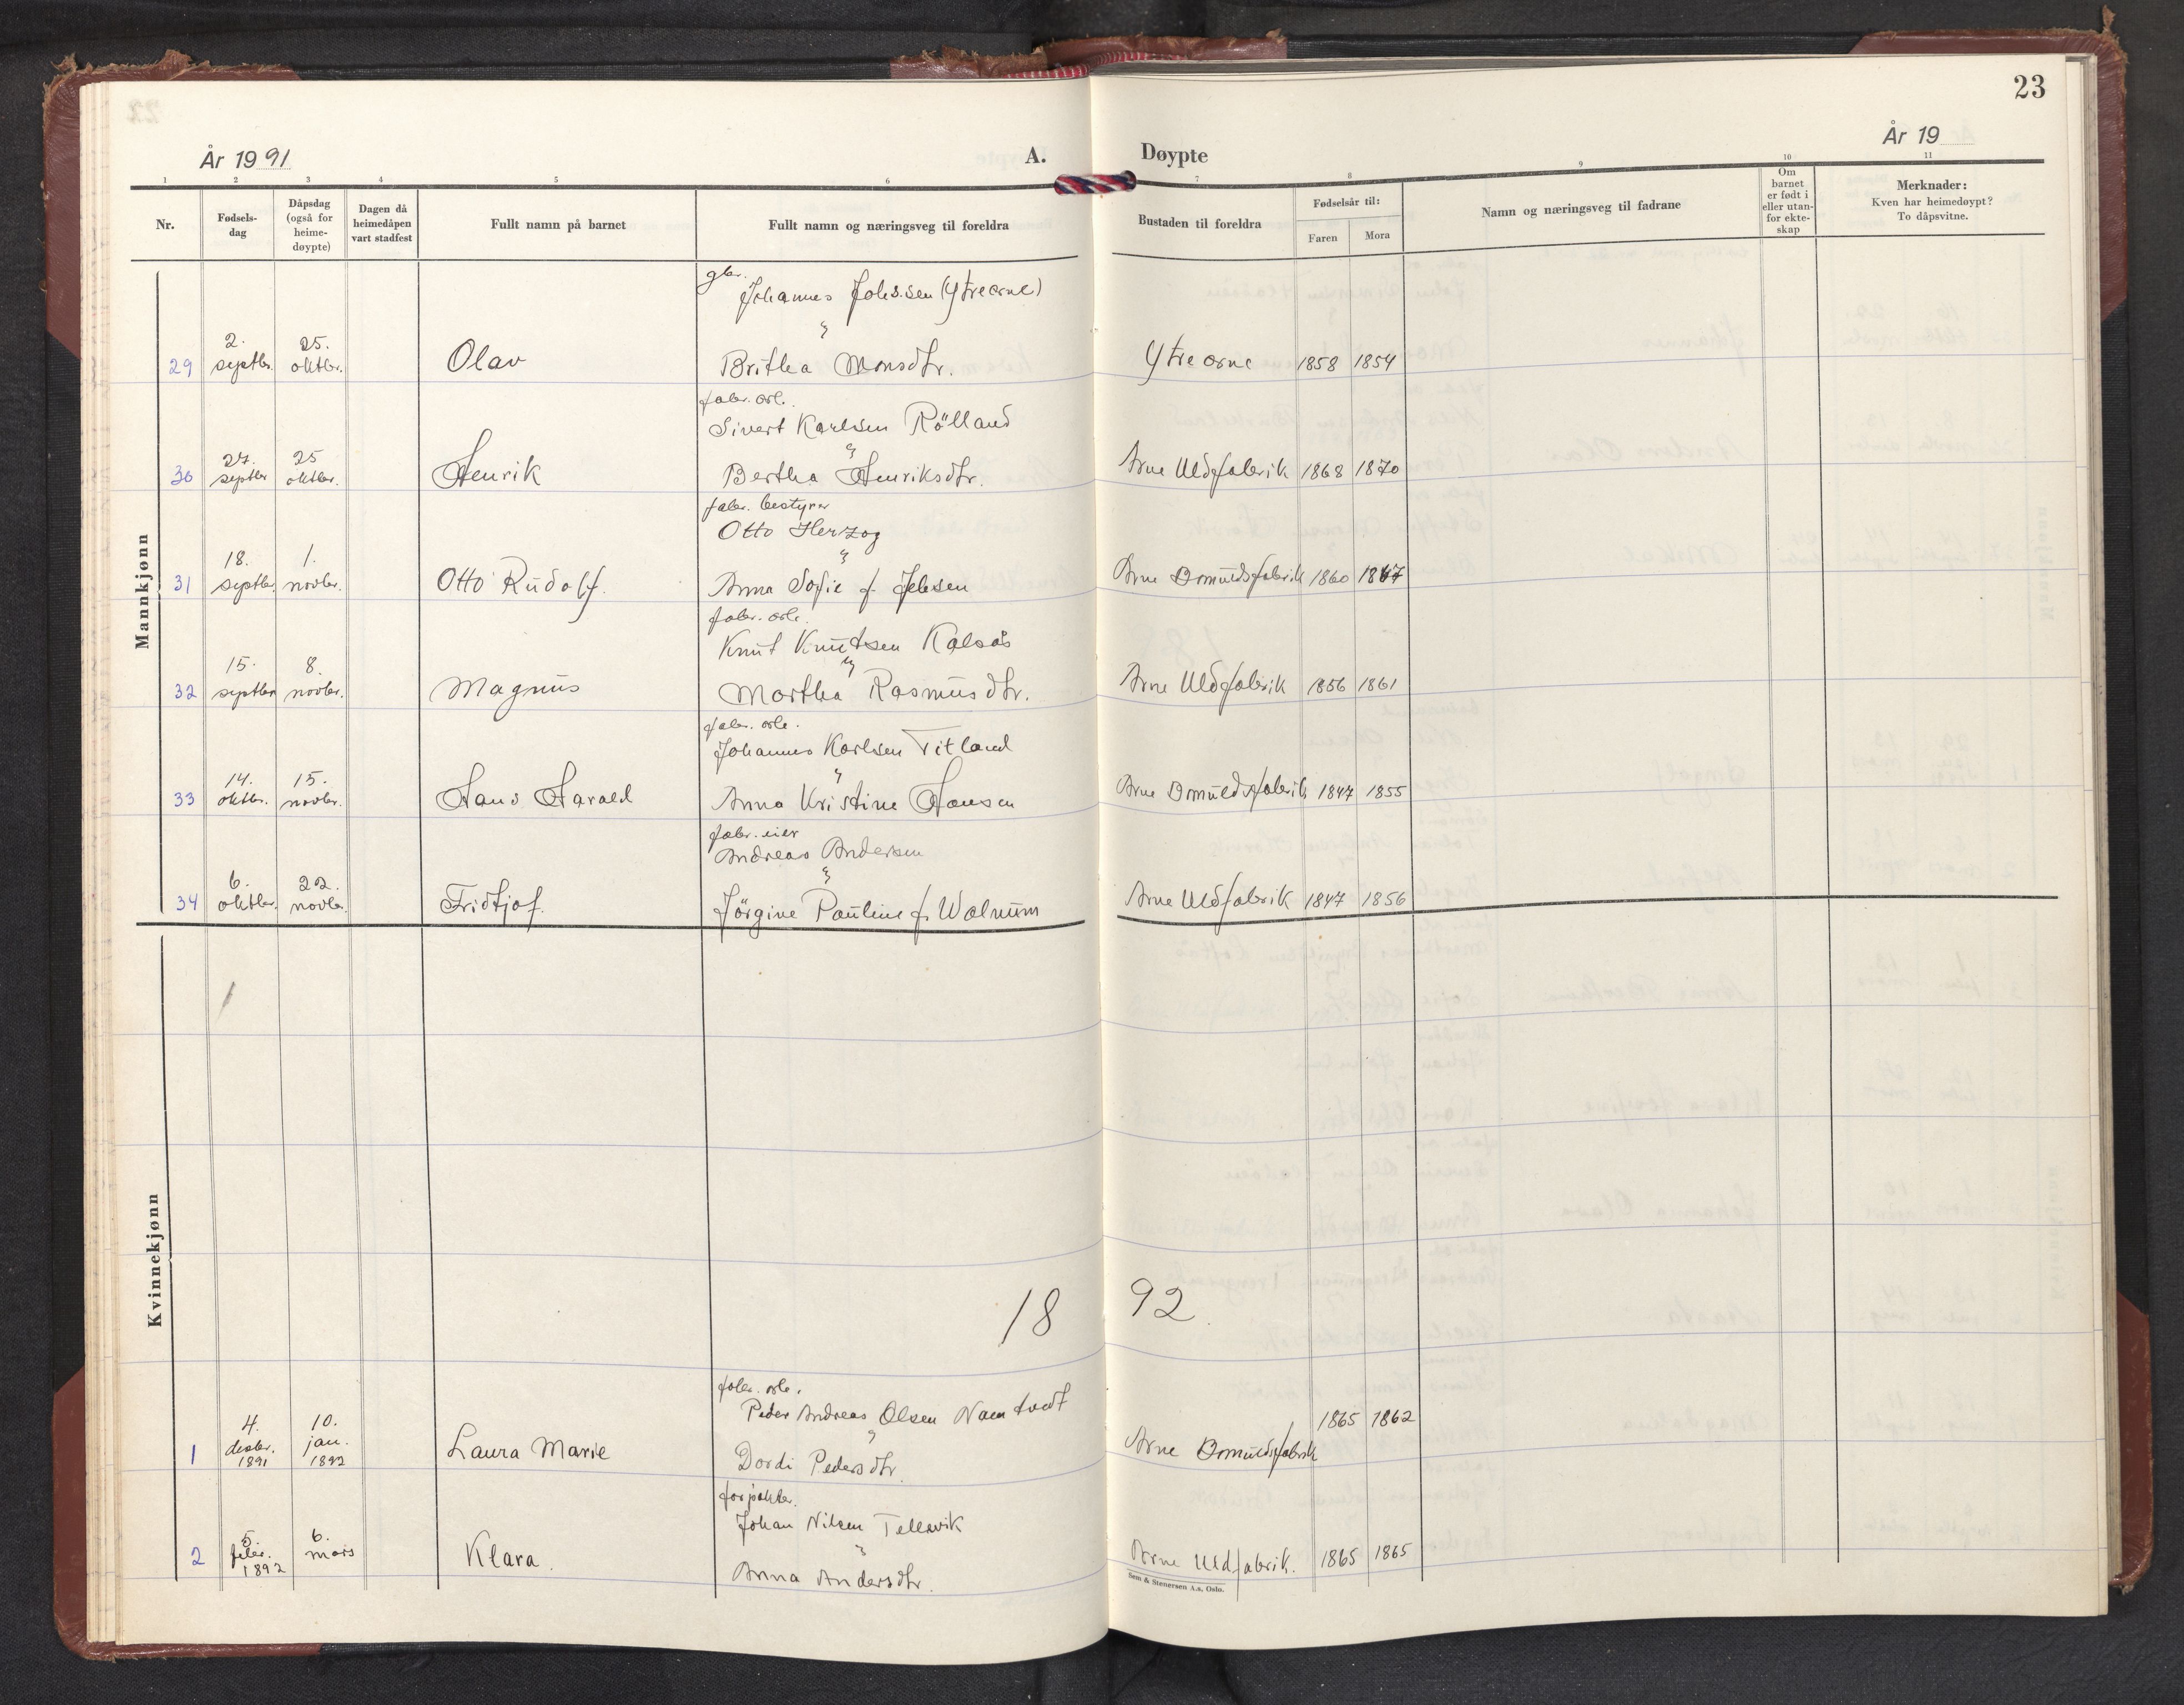 23
År 1991
A.
Døypte
År 19
1 2 3 4 5 6 7 8 9 10 11
Nr.
Fødsels-
dag
Dåpsdag
(også for
heime-
døypte)
Dagen då
heimedåpen
vart stadfest
Fullt namn på barnet
Fullt namn og næringsveg til foreldra
Bustaden til foreldra
Fødselsår til:
Faren
Mora
Namn og næringsveg til fadrane
Om
barnet
er født i
eller utan-
for ekte-
skap
Merknader:
Kven har heimedøypt?
To dåpsvitne.
Mannkjønn
gbr.
Johannes Johs.sen (Ytre arne)
29 2. septbr. 25. oktbr. Olav Britha Monsdtr. Ytre arne 1858 1854
fabr. arb.
Sivert Karlsen Rölland
30 27. septbr 25 oktbr. Henrik Bertha Henriksdtr. Arne Uldfabrik 1868 1870
fabr. bestyrer
Otto Herzog
31 18. septbr. 1. novbr. Otto Rudolf. Anna Sofie f. Jebsen Arne Bomuldsfabrik 1860 1867
fabr. arb.
Knut Knutsen Kalsås
32 15. septbr 8. novbr. Magnus Martha Rasmusdtr. Arne Uldfabrik 1856 1861
fabr. arb.
Johannes Karlsen Titland
33 14. oktbr. 15. novbr. Hans Harald Anna Kristine Hansen Arne Bomuldsfabrik 1847 1855
fabr. eier
Andreas Andersen
34 6. oktbr. 22. novbr. Fridtjof. Jörgine Pauline f. Walnum Arne Uldfabrik 1847 1856
Kvinnekjønn
18 92
fabr. arb.
Peder Andreas Olsen Namtvedt
1 4. desbr. 1891 10. jan. 1892 Laura Marie Dordi Pedersdtr. Arne Bomuldsfabrik 1865 1862
forpakter.
Johan Nilsen Tellevik
2 5. febr. 1892 6. mars Klara. Anna Andersdtr. Arne Uldfabrik. 1865 1865
Sem & Stenersen A.s, Oslo.